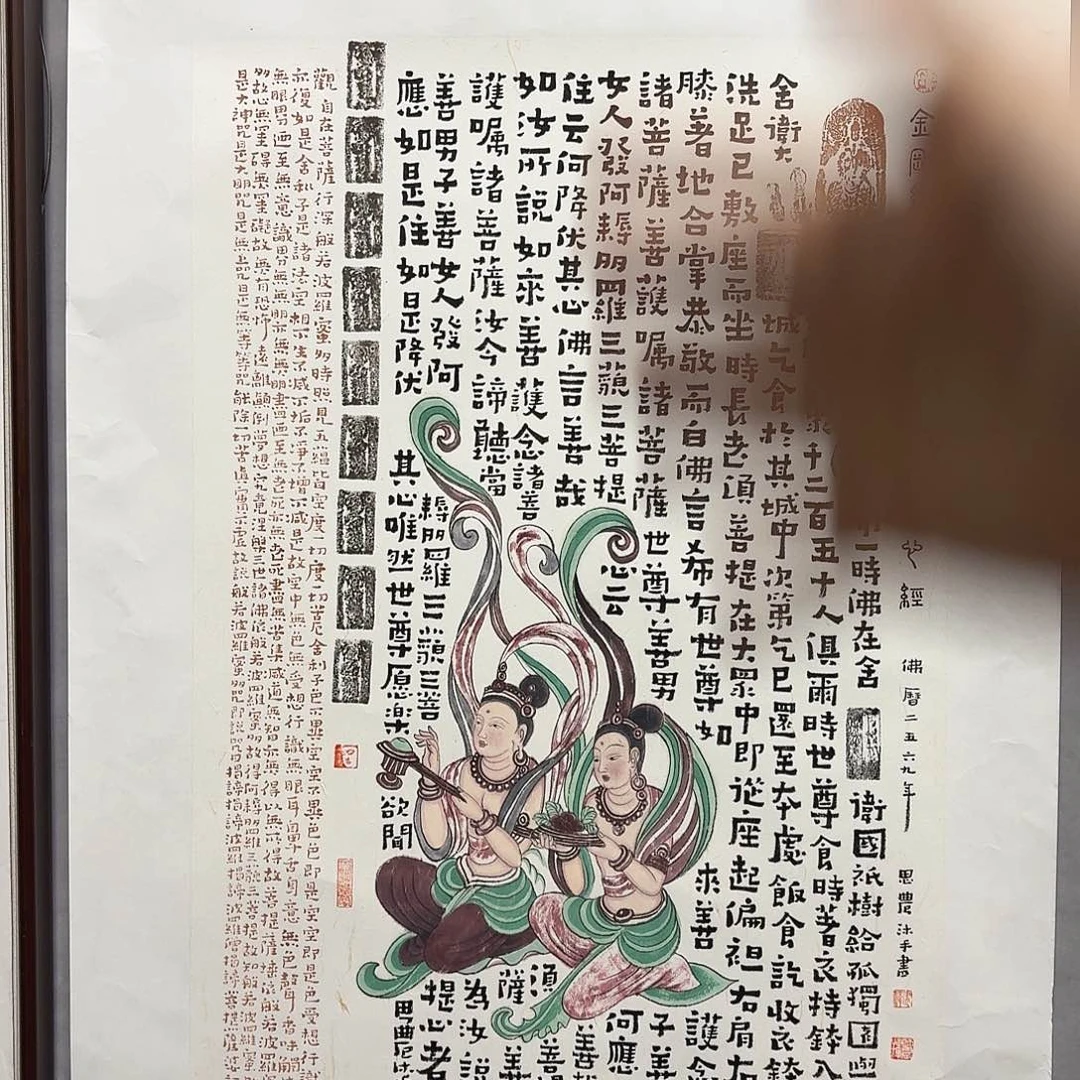 金
經 佛曆二五六九年 思農沐手書
一時佛在舍衛國祇樹給孤獨園與
眾千二百五十人俱爾時世尊食時著衣持鉢入
舍衛大城乞食於其城中次第乞已還至本處飯食訖收衣鉢
洗足已敷座而坐時長老須菩提在大眾中即從座起偏袒右肩右
膝著地合掌恭敬而白佛言希有世尊如來善護念
諸菩薩善護囑諸菩薩世尊善男子善
女人發阿耨多羅三藐三菩提心云何應
住云何降伏其心佛言善哉善
如汝所說如來善護念諸善薩須善
護囑諸菩薩汝今諦聽當為汝說
善男子善女人發阿耨多羅三藐三菩提心者
應如是住如是降伏其心唯然世尊愿樂欲聞
思農沐
觀自在菩薩行深般若波羅蜜多時照見五蘊皆空度一切度一切苦厄舍利子色不異空空不異色色即是空空即是色受想行識
亦復如是舍利子是諸法空相不生不滅不垢不淨不增不減是故空中無色無受想行識無眼耳鼻舌身意無色聲香味觸
無眼界迺至無意識界無無明亦無無明盡迺至無老死亦無老死盡無苦集滅道無智亦無得以無所得故菩提薩埵依般若波羅
多故心無罣礙無罣礙故無有恐怖遠離顛倒夢想究竟涅槃三世諸佛依般若波羅蜜多故得阿耨多羅三藐三菩提故知般若波羅蜜
是大神咒是大明咒是無上咒是無等等咒能除一切苦真實不虛故說般若波羅蜜多咒即說咒曰揭諦揭諦波羅揭諦波羅僧揭諦菩提薩婆